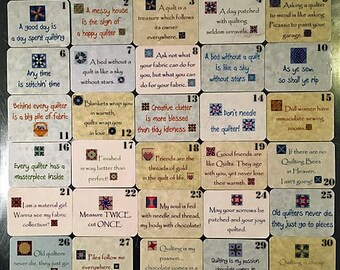 1
A good day is
a day spent quilting
A messy house
is the sign of
a happy quilter
A quilt is a
treasure which follows
its owner
everywhere.
A day patched with
quilting
seldom unravels.
Asking a quilter
to mend is like
asking Picasso to
paint your garage.
6
Any time
is stitchin' time
7
A bed without a
quilt is like a sky
without stars
8
Ask not what
your fabric can do for
you, but what you
can do for your fabric.
9
A bed without a quilt
is like a sky
without stars
10
As ye sew,
so shall ye rip
Behind every quilter
is a big pile of fabric
11
Blankets wrap you in
warmth,
quilts wrap
you in love
12
13
Creative clutter
is more blessed
than tidy idleness
14
Don't needle
the quilter!
15
Dull women have
immaculate sewing
rooms.
16
Every quilter has a
masterpiece inside
17
Finished
is way better
than perfect!
18
Friends are the
threads of gold
in the quilt of life.
19
Good friends are
like Quilts. They age
with you, yet never
lose their warmth.
20
If there are no
Quilting Bees in
Heaven,
I ain't going!
21
I am a material girl.
Wanna see my
fabric collection?
22
Measure TWICE,
cut ONCE
23
My soul is fed
with needle and thread,
my body with chocolate!
24
May your sorrows
be patched and
your joys
quilted.
25
Old quilters never
die, they just go to rest
26
Old quilters
never die,
they just go
27
Piles follow me
everywhere.
28
Quilting is my
passion...
29
Quilting is my
passion
30
Quilting